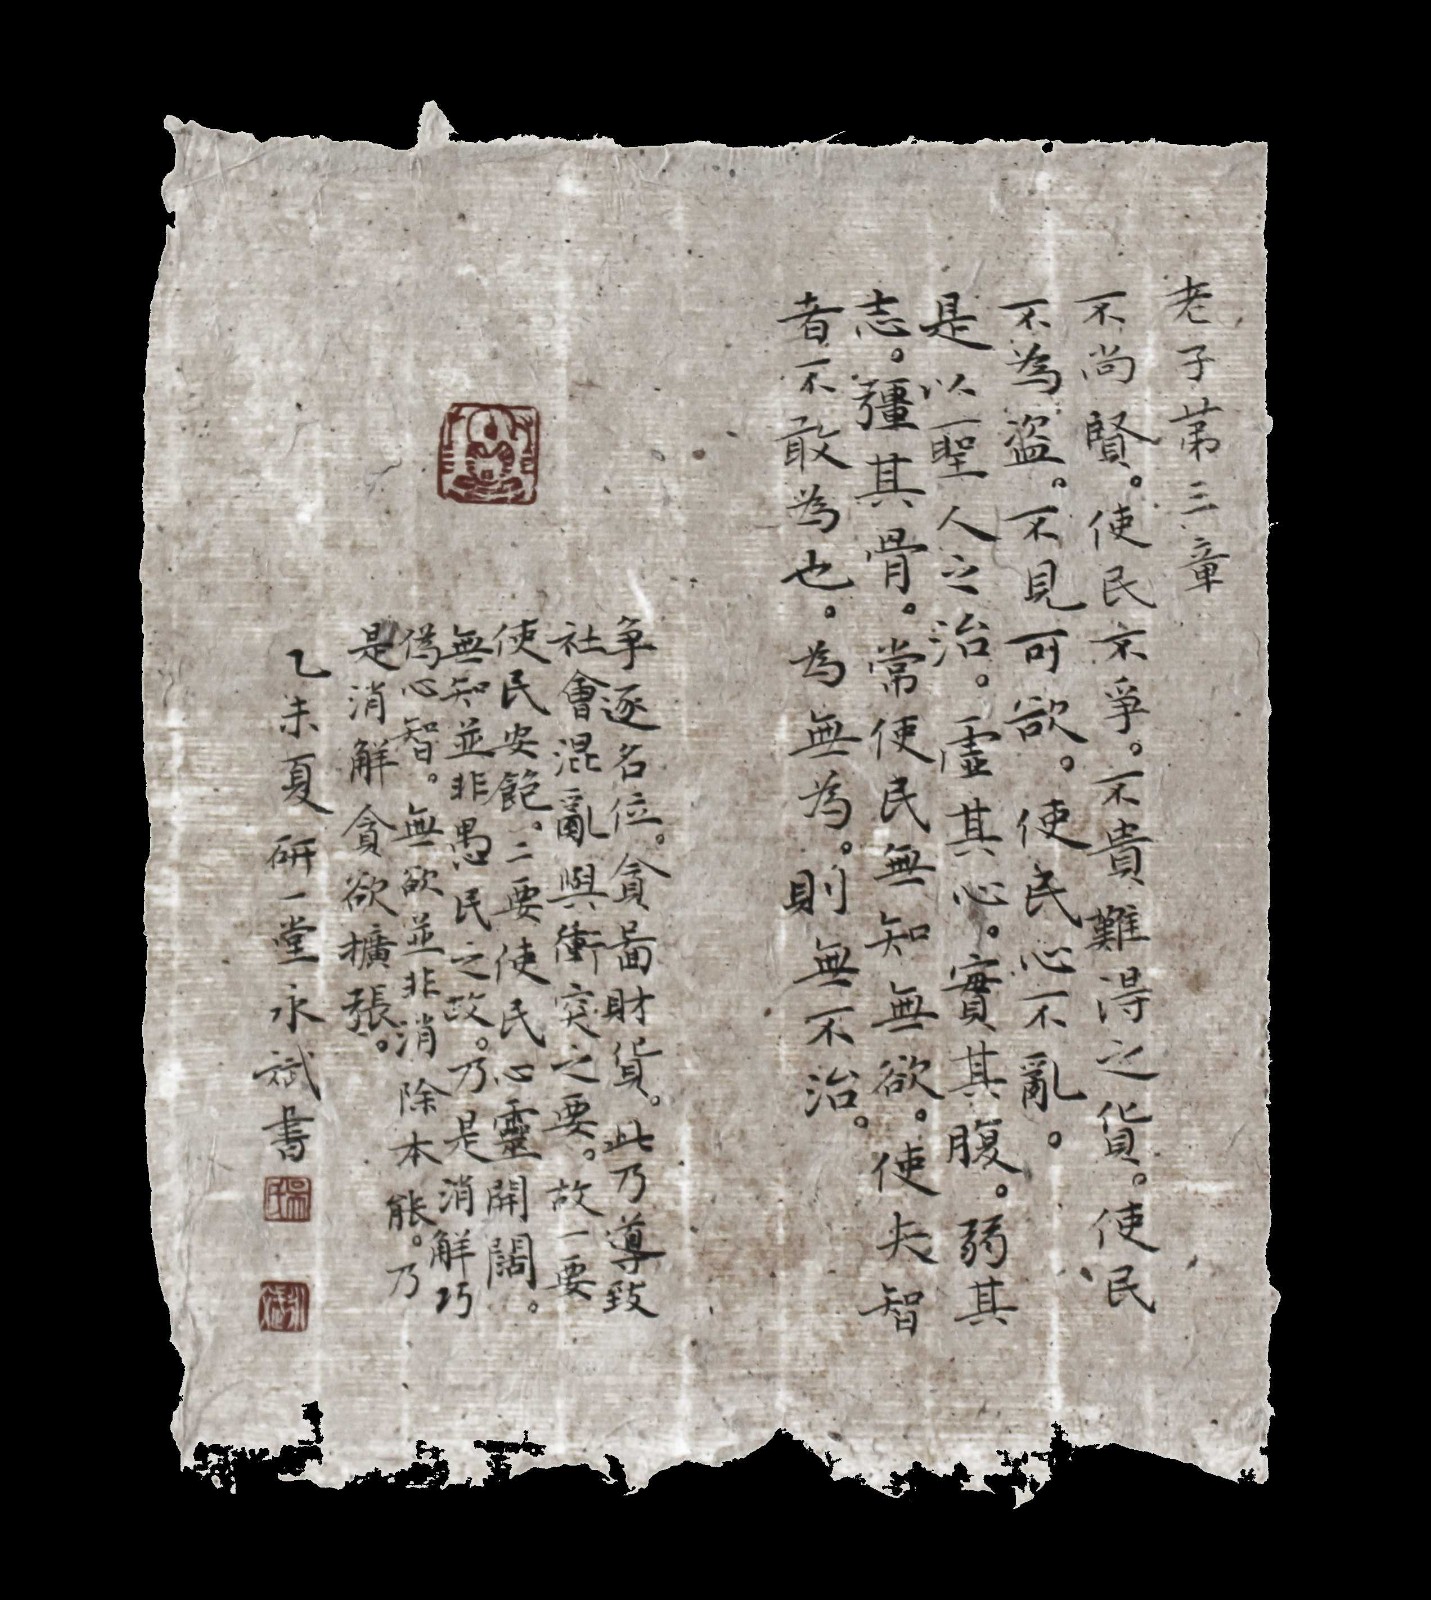 老子苐三章
不尚賢。使民不爭。不貴難得之貨。使民
不為盜。不見可欲。使民心不亂。
是以聖人之治。虛其心。實其腹。弱其
志。彊其骨。常使民無知無欲。使夫智
者不敢為也。為無為。則無不治。
争逐名位。貪啚財貨。此乃導致
社會混亂與衝突之要。故一要
使民安飽。二要使民心靈開闊。
無知並非愚民之故。乃是消解巧
偽心智。無欲並非消除本能。乃
是消解貪欲擴張。
乙未夏研一堂永斌書
吳氏
永斌